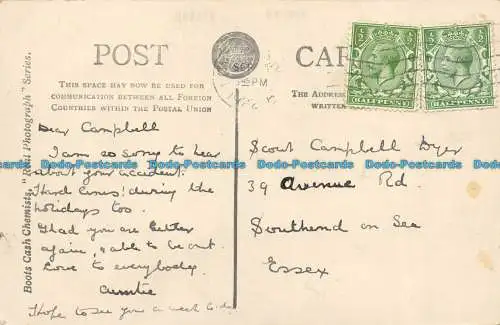 POST CARD
THIS SPACE MAY NOW BE USED FOR
COMMUNICATION BETWEEN ALL FOREIGN
COUNTRIES WITHIN THE POSTAL UNION
THE ADDRESS
WRITTEN
HALFPENNY HALFPENNY
PM
Boots Cash Chemists, "Real Photograph" Series.
Dear Campbell
I am so sorry to hear
about your accident.
Hard lines! during the
holidays too.
Glad you are better
again, & able to be out.
Love to everybody.
Auntie
I hope to see you a week
Scout Campbell Dyer
39 Avenue Rd.
Southend on Sea
Essex
bbc-Postcards bbc-Postcards bbc-Postcards